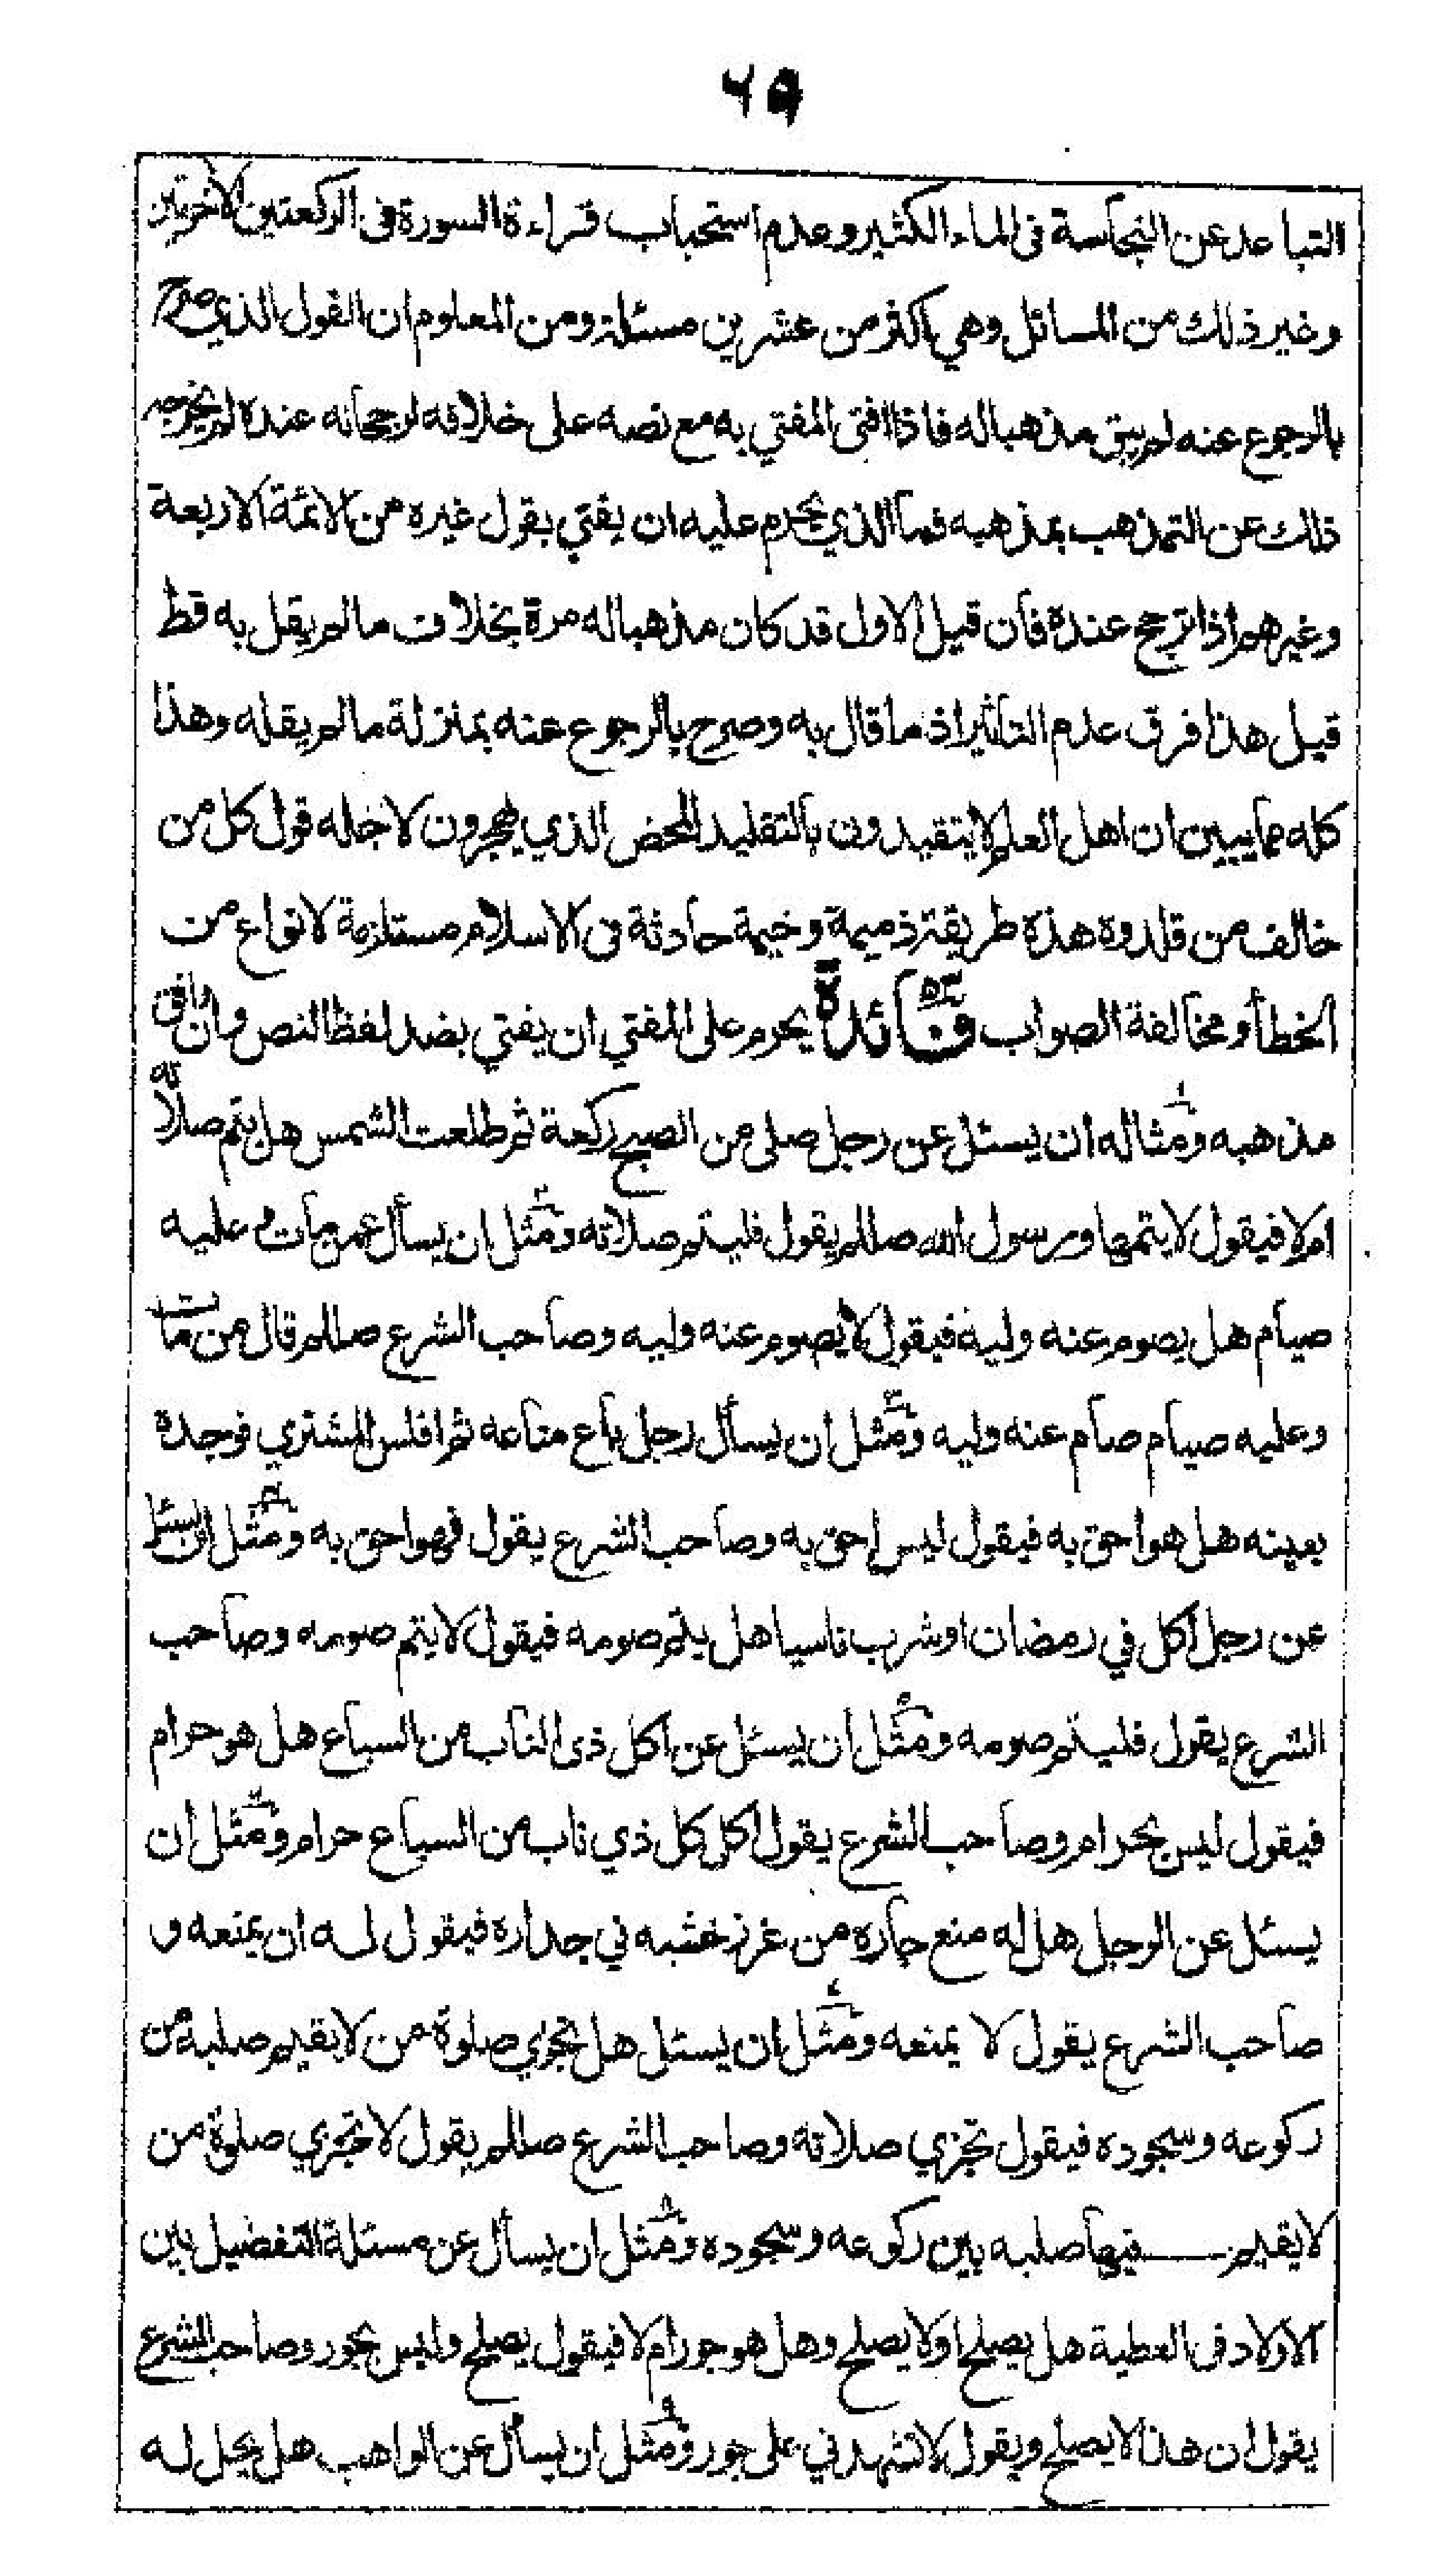 ٦٥
التباعد عن النجاسة فى الماء الكثير وعدم استحباب قراءة السورة فى الركعتين الاخرتين
وغير ذلك من المسائل وهي اكثر من عشرين مسئلة ومن المعلوم ان القول الذي صرح
بالرجوع عنه لم يبق مذهبا له فاذا افتى المفتي به مع نصه على خلافه لرجحانه عنده لم يخرجه
ذلك عن التمذهب بمذهبه فما الذي يحرم عليه ان يفتي بقول غيره من الائمة الاربعة
وغيرهم اذا ترجح عنده فان قيل الاول قد كان مذهبا له مرة بخلاف ما لم يقل به قط
قيل هذا فرق عدم التاثير اذ ما قال به وصرح بالرجوع عنه بمنزلة ما لم يقله وهذا
كله مما يبين ان اهل العلم لا يتقيدون بالتقليد المحض الذي يهجرون لاجله قول كل من
خالف من قلدوه هذه طريقة ذميمة وخيمة حادثة فى الاسلام مستلزمة لانواع من
الخطأ ومخالفة الصواب فائدة يحرم على المفتي ان يفتي بضد لفظ النص وان وافق
مذهبه ومثاله ان يسئل عن رجل صلى من الصبح ركعة ثم طلعت الشمس هل يتم صلاته
ام لا فيقول لا يتمها ورسول الله صللم يقول فليتم صلاته ومثل ان يسأل عمن مات وعليه
صيام هل يصوم عنه وليه فيقول لا يصوم عنه وليه وصاحب الشرع صللم قال من مات
وعليه صيام صام عنه وليه ومثل ان يسأل رجل باع متاعه ثم افلس المشتري فوجده
بعينه هل هو احق به فيقول ليس احق به وصاحب الشرع يقول فهو احق به ومثل ان يسئل
عن رجل اكل في رمضان او شرب ناسيا هل يتم صومه فيقول لا يتم صومه وصاحب
الشرع يقول فليتم صومه ومثل ان يسئل عن اكل ذى الناب من السباع هل هو حرام
فيقول ليس بحرام وصاحب الشرع يقول اكل كل ذي ناب من السباع حرام ومثل ان
يسئل عن الرجل هل له منع جاره من غرز خشبه في جداره فيقول له ان يمنعه و
صاحب الشرع يقول لا يمنعه ومثل ان يسئل هل تجزي صلوة من لا يقيم صلبه من
ركوعه وسجوده فيقول تجزي صلاته وصاحب الشرع صللم يقول لا تجزي صلوة من
لا يقيم فيها صلبه بين ركوعه وسجوده ومثل ان يسأل عن مسئلة التفضيل بين
الاولاد فى العطية هل يصلح او لا يصلح وهل هو جور ام لا فيقول يصلح وليس بجور وصاحب الشرع
يقول ان هذا لا يصلح ويقول لا تشهدني على جور ومثل ان يسأل عن الواهب هل يحل له